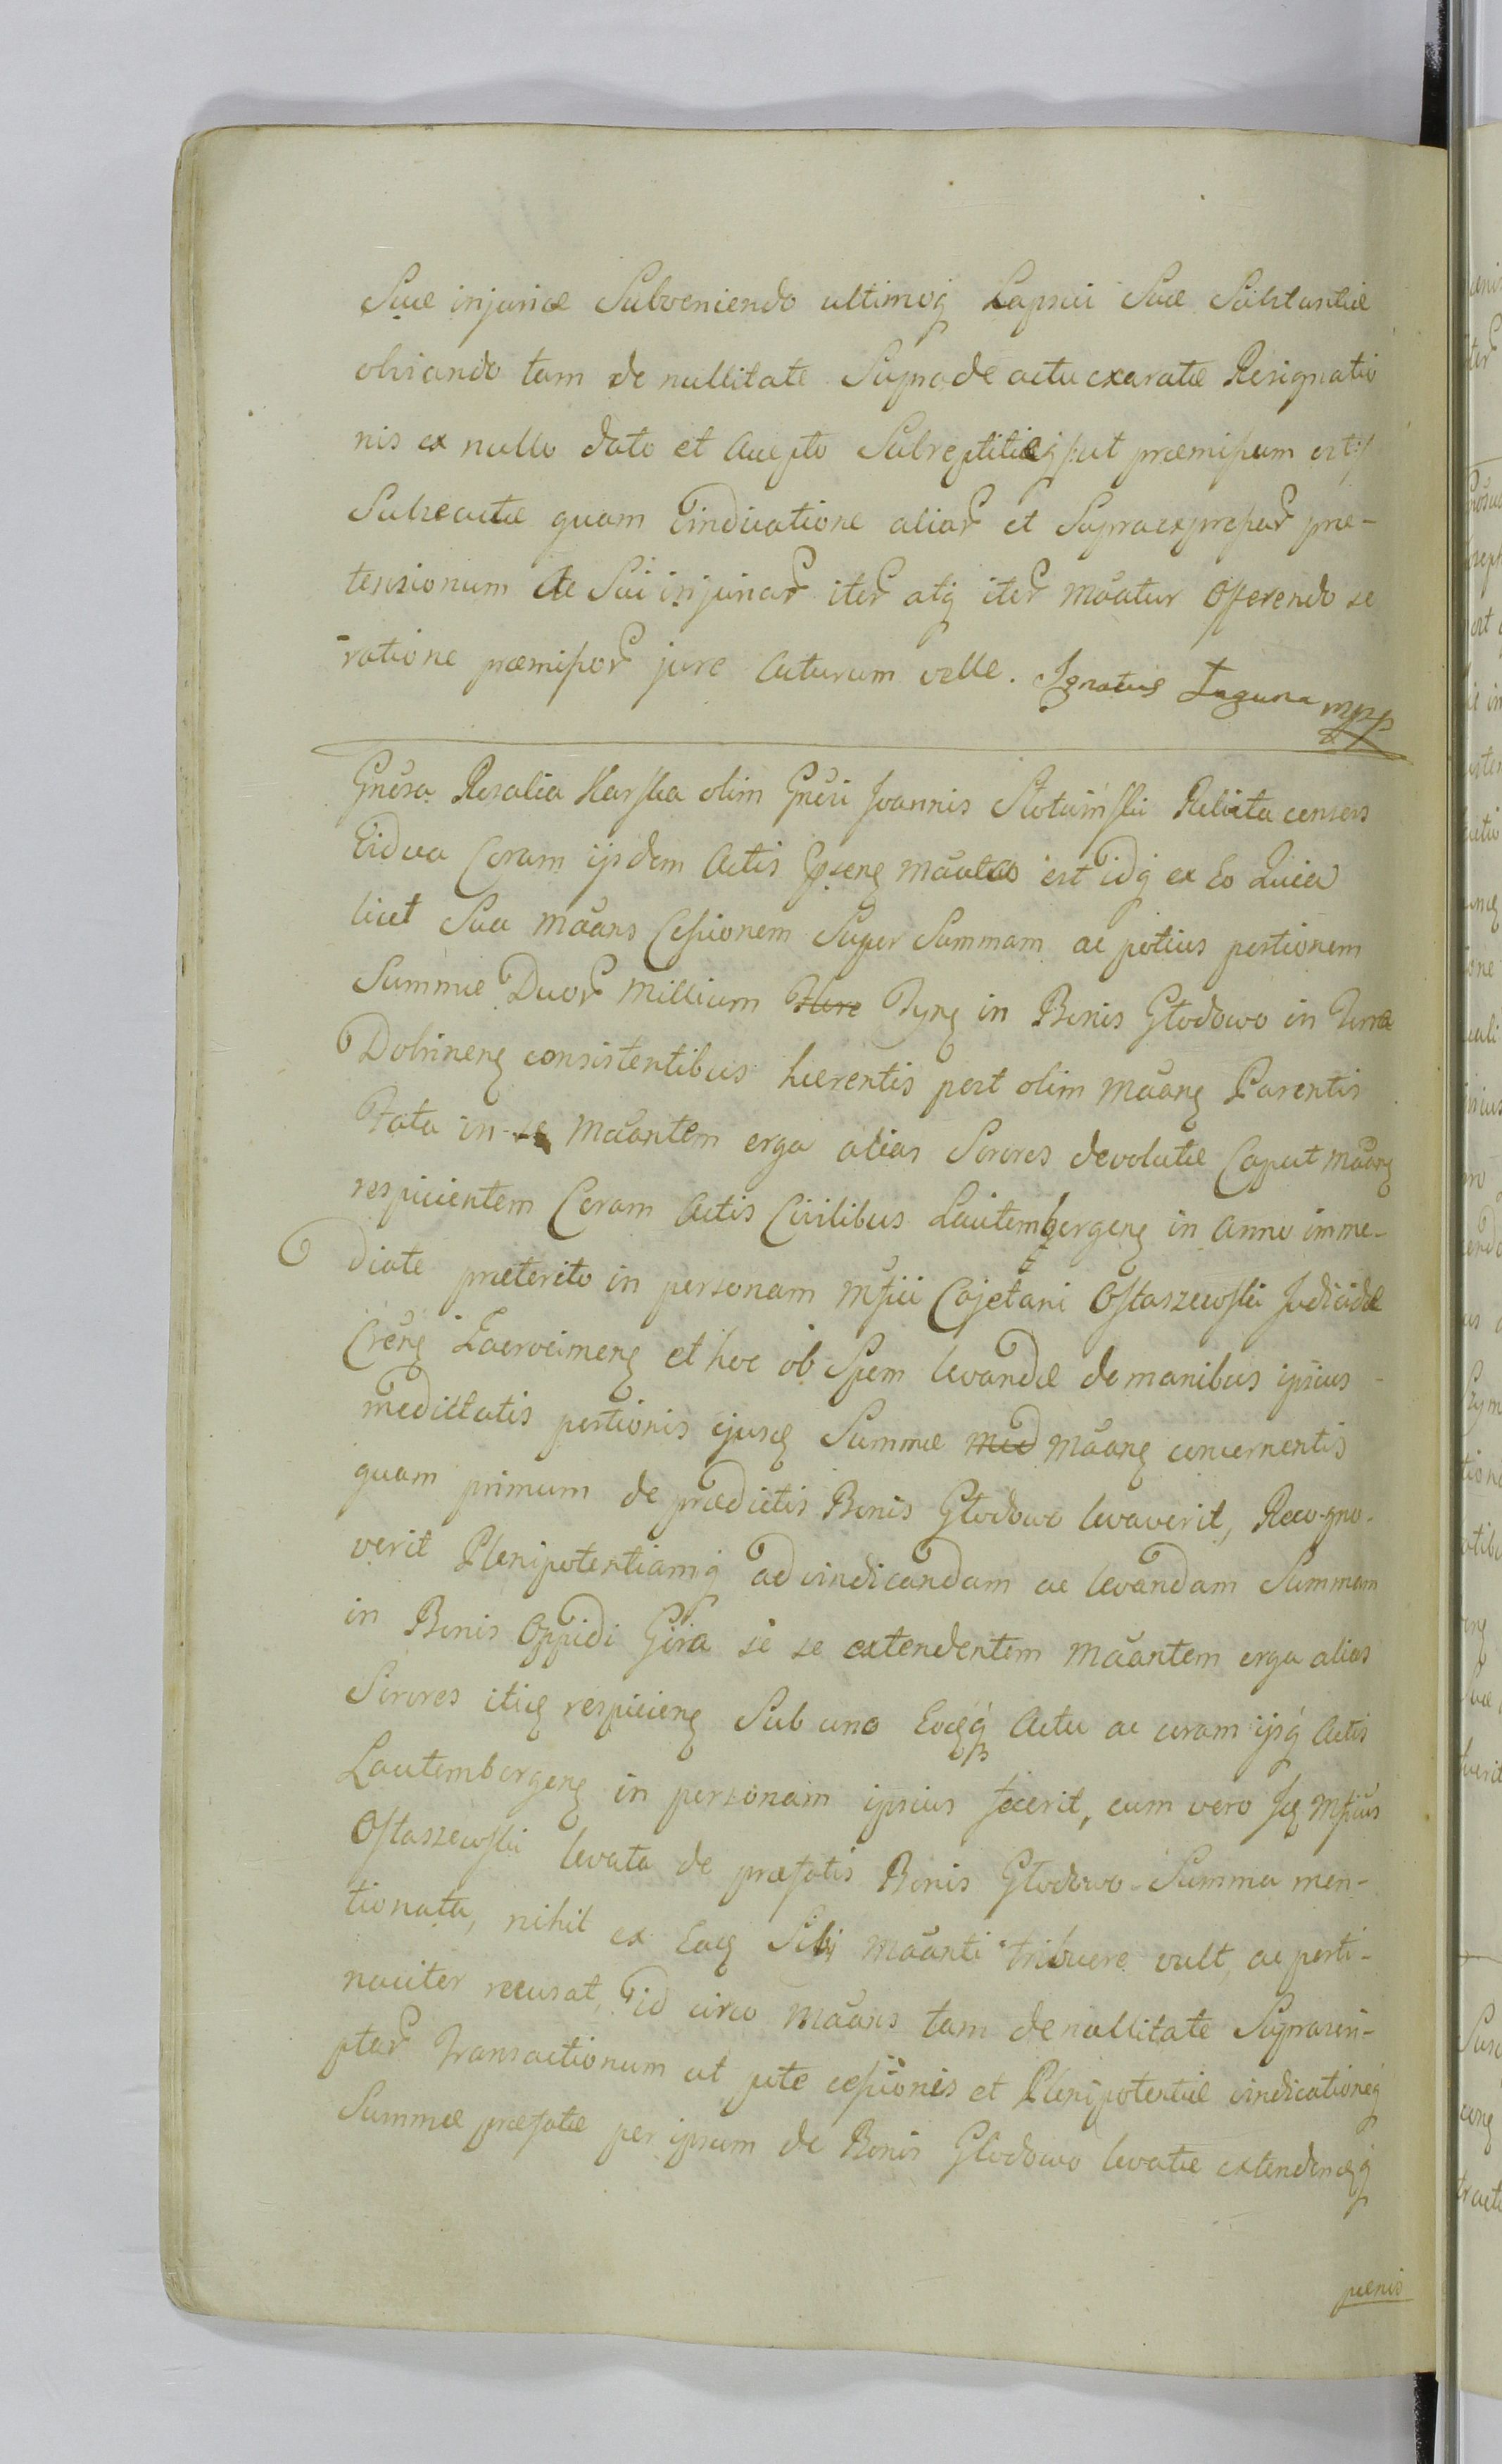 Suæ injuriæ Subveniendo ultimoq Lapsui Suæ Substantiæ
obviando tam de nullitate Suprade actu exaratæ Resignatio
nis ex nullo dato et accepto Subreptitieq /:ut præmissum est:/
Subsecutæ quam vindicatione aliar et Supraexpressar præ-
tensionum de Sui injuriar iter atq iter mãatur Offerendo se
ratione præmissor jure Acturum velle. Ignatius Laguna mpp
Gnẽsa Rosalia Karska olim Gnẽsi Joannis Slotuinski Relicta consors
Vidua Coram ijsdem Actis mãata est idq ex Eo Quia
licet Sua mãans Cessionem Super Summam ac potius portionem
Summæ Duor Millium Flore Tynf in Bonis Głodowo in Terra
Dobrinen consistentibus hærentis post olim mãans Parentis
Fata in se mãantem erga alias Sorores devolutæ Caput mãans
respicientem Coram Actis Civilibus Lautembergen in Anno imme-
diate præterito in personam Msfici Cajetani Ostaszewski Judicidæ
Cren et hoc ob Spem levandæ de manibus ipsius
medietatis portionis ejusd Summæ med mãans concernentis
quam primum de prædictis Bonis Głodowo levaverit, Recogno-
verit Plenipotentiamq ad vindicandam ac levandam Summam
in Bonis Oppidi Gira se se extendentem mãantem erga alias
Sorores itid respicien Sub uno Eodq Actu ac coram ijsq Actis
Lautembergen in personam ipsius fecerit, cum vero Id Msficus
Ostaszewski levata de præfatis Bonis Głodowo Summa men-
tionata, nihil ex Ead Sibi mãanti tribuere vult, ac perti-
naciter recusat, id circo mãans tam de nullitate Suprascri-
ptar Transactionum ut pute cessionis et Plenipotentiæ vindicationeq
Summæ præfatæ per ipsum de Bonis Głodowo levatæ extendendq
pænis